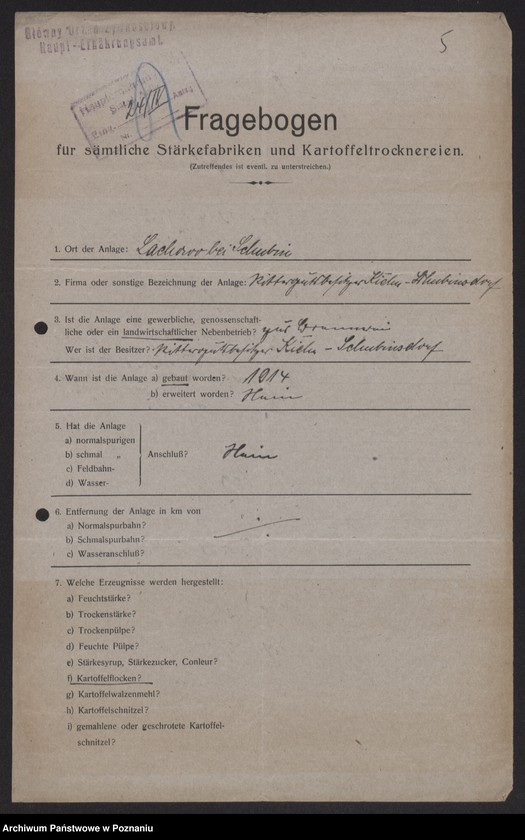 Główny Urząd
Haupt-Ernährungsamt.
5
24/IV
Fragebogen
für sämtliche Stärkefabriken und Kartoffeltrocknereien.
(Zutreffendes ist eventl. zu unterstreichen.)
1. Ort der Anlage: bei Schubin
2. Firma oder sonstige Bezeichnung der Anlage: Rittergutsbesitzer Kiehn - Schubinsdorf
3. Ist die Anlage eine gewerbliche, genossenschaft-
liche oder ein landwirtschaftlicher Nebenbetrieb? zur Brennerei
Wer ist der Besitzer? Rittergutsbesitzer Kiehn - Schubinsdorf
4. Wann ist die Anlage a) gebaut worden? 1914
b) erweitert worden? Nein
5. Hat die Anlage
a) normalspurigen
b) schmal „
Anschluß? Nein
c) Feldbahn-
d) Wasser-
6. Entfernung der Anlage in km von
a) Normalspurbahn?
b) Schmalspurbahn?
c) Wasseranschluß?
7. Welche Erzeugnisse werden hergestellt:
a) Feuchtstärke?
b) Trockenstärke?
c) Trockenpülpe?
d) Feuchte Pülpe?
e) Stärkesyrup, Stärkezucker, Conleur?
f) Kartoffelflocken?
g) Kartoffelwalzenmehl?
h) Kartoffelschnitzel?
i) gemahlene oder geschrotete Kartoffel-
schnitzel?
Archiwum Państwowe w Poznaniu